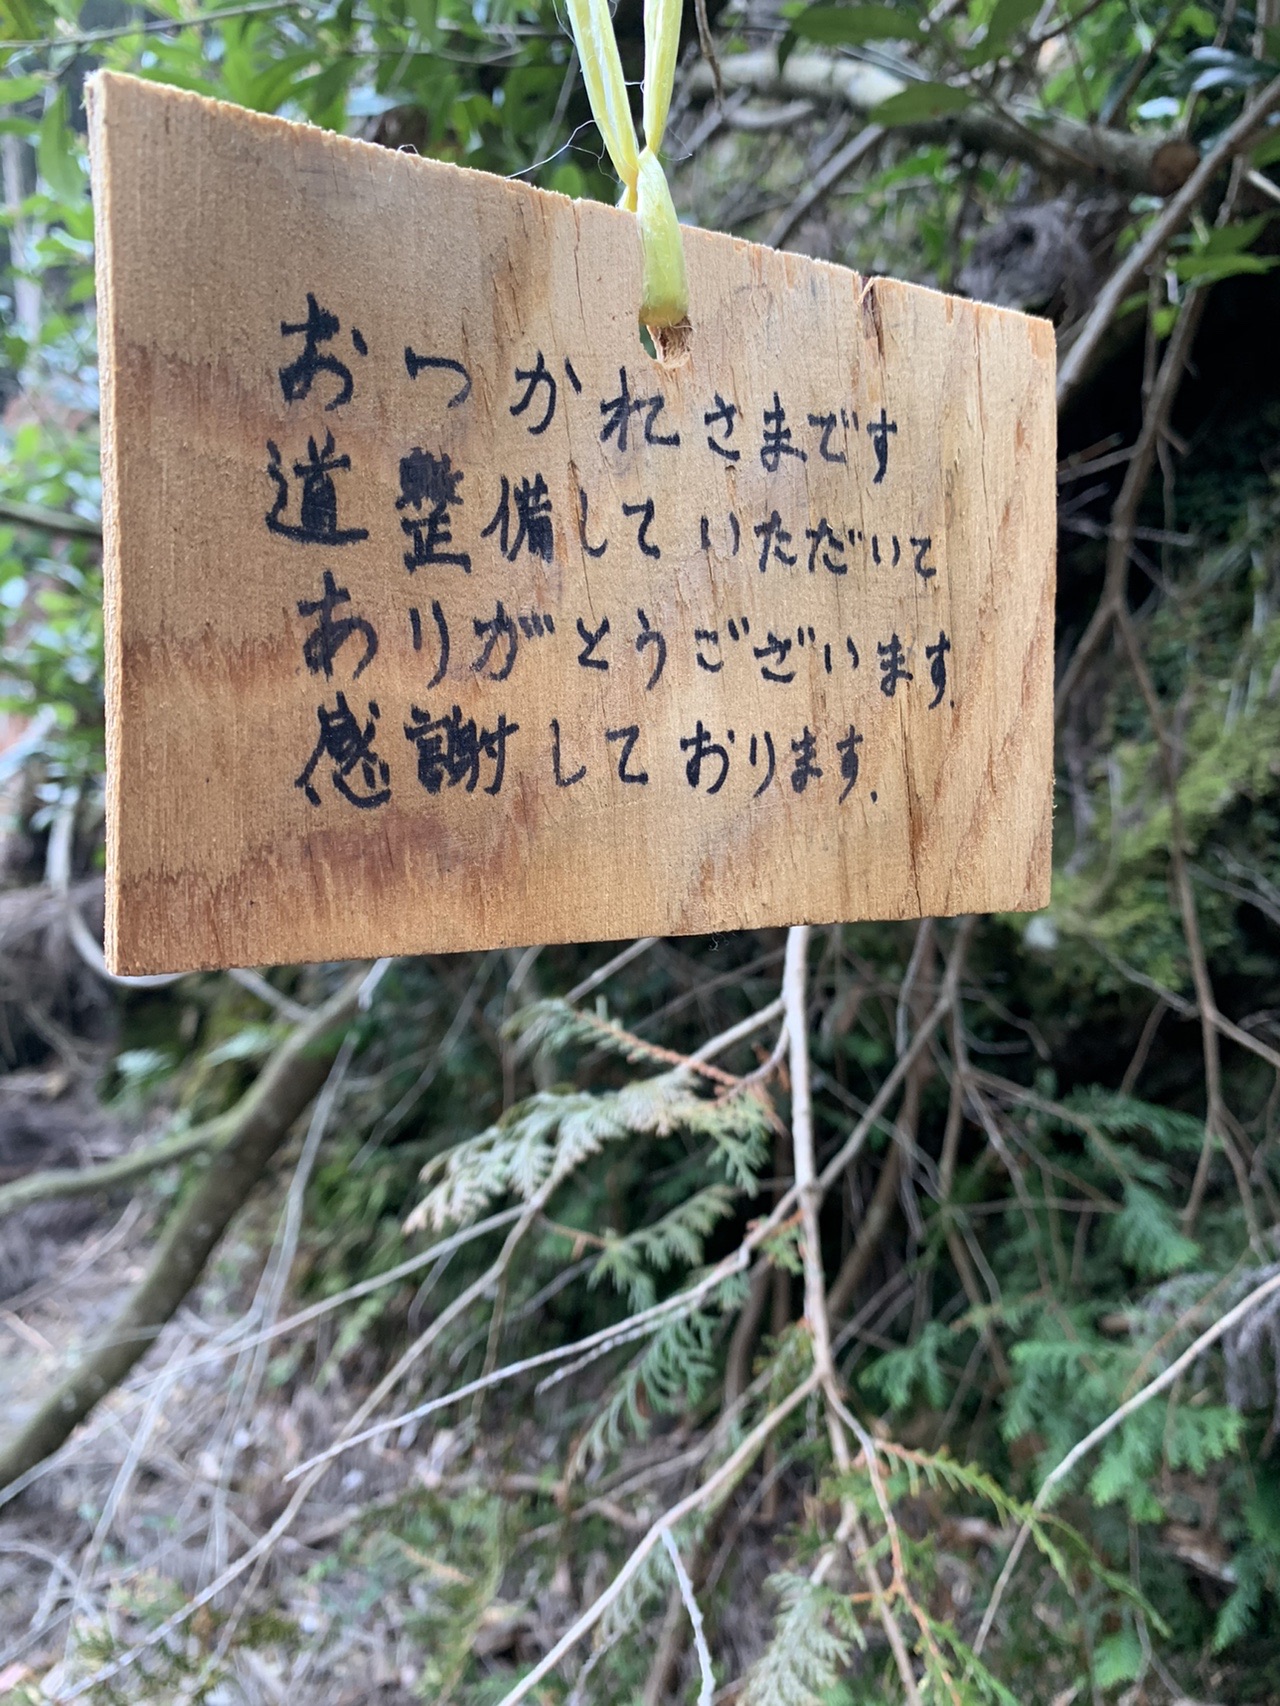 おつかれさまです
道整備していただいて
ありがとうございます.
感謝しております.